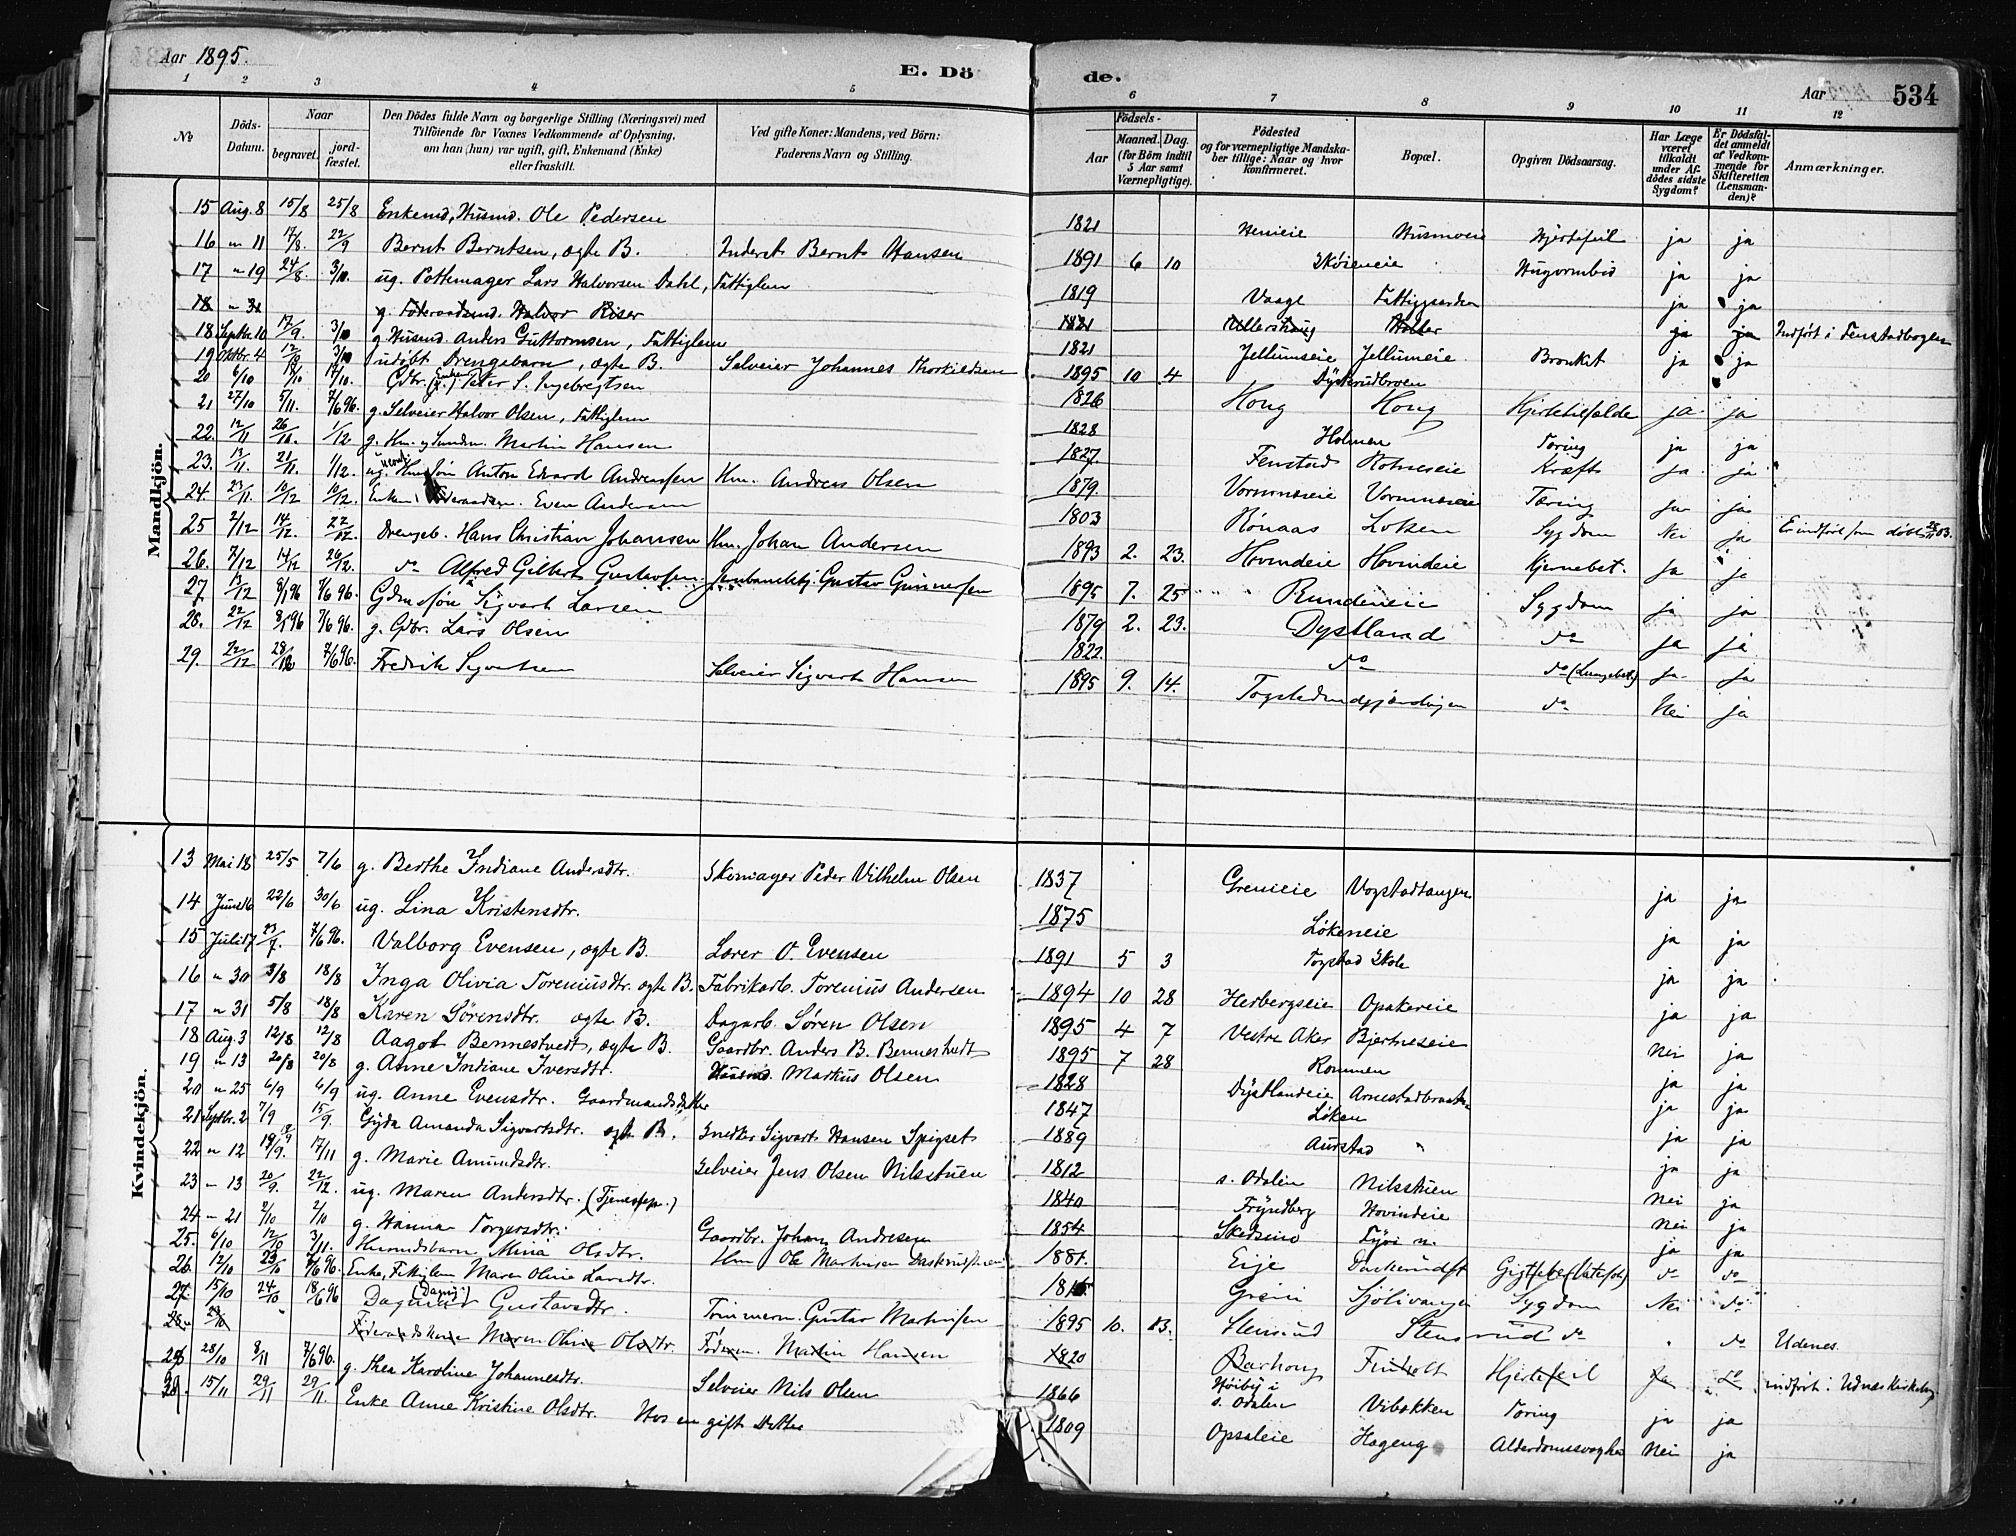 Aar 1895.
E. Döde.
Aar 534
1 2 3 4 5 6 7 8 9 10 11 12
No
Döds-Datum.
Naar begravet. jordfæstet.
Den Dödes fulde Navn og borgerlige Stilling (Næringsvei) med Tilföiende for Voxnes Vedkommende af Oplysning, om han (hun) var ugift, gift, Enkemand (Enke) eller fraskilt.
Ved gifte Koner: Mandens, ved Börn: Faderens Navn og Stilling.
Födsels- Aar Maaned. Dag. (for Börn indtil 5 Aar samt Værnepligtige).
Födested og for værnepligtige Mandskaber tillige: Naar og hvor Konfirmeret.
Bopæl.
Opgiven Dödsaarsag.
Har Læge været tilkaldt under Afdödes sidste Sygdom?
Er Dödsfaldet anmeldt af Vedkommende for Skifteretten (Lensmanden)?
Anmærkninger.
Mandkjön.
15 Aug. 8 15/8 25/8 Enkemd, Husmd. Ole Pedersen 1821 Henieie Husmoeie Hjertefeil ja ja
16 " 11 17/8 22/9 Bernt Berntsen, ægte B. Inderst Bernt Hansen 1891 6 10 Skøieneie Hugormbid ja ja
17 " 19 24/8 3/10 ug. Pottemager Lars Halvorsen Dahl, Fattiglem 1819 Vaage Fattiggaarden ja ja
18 " 31 g. Föderaadsmd. Halvor Riser 1821 Ullershaug Holter ja ja Indfört i Fenstadbogen
18 Septbr. 10 17/9 3/10 g. Husmd Anders Guttormsen, Fattiglem 1821 Jellumseie Jellumeie Bronkit ja ja
19 Oktbr. 4 12/10 3/10 udöbt Drengebarn, ægte B. Selveier Johannes Thorkildsen 1895 10 4 Dysterudbroen
20 6/10 Gdbr. Peter S. Ingebregtsen 1826 Hong Hong Hjertelidelse ja ja
21 27/10 5/11. 7/6 96. g. Selveier Halvor Olsen, Fattiglem 1828 Holmen Tæring ja ja
22. 12/11 26/11. 1/12 g. Hm. og Smdm. Martin Hansen 1827. Fenstad Rotneseie Kræft ja ja
23. 13/11. 21/11. 1/12. ug. Hmssøn Anton Edvard Andreassen Hm. Andreas Olsen 1879. Vormnæseie Vormnæseie Tæring ja ja
24. 23/11. 10/12 10/12. Enkem. Föderaadsm. Even Andersen 1803 Rönaas Loken Sygdom Nei ja Ei indført som döbt
25 2/12 14/12. 22/12. Drengeb. Hans Christian Johansen Hm. Johan Andersen 1893 2. 23. Hovindeie Hovindeie Kjertelbet. ja ja
26. 7/12 14/12 26/12. do Alfred Gilbert Gustavsen Jernbanearbj. Gustav Gunnersen 1895 7. 25 Rundeneie Sygdom ja ja
27. 13/12 8/1 96 7/6 96. Gdmssön Sigvart Larsen 1879 2. 23. Dystland do ja ja
28. 22/12 8/1 96 7/6 96. g. Gdbr. Lars Olsen 1822. do do (Lungebet.) ja ja
29. 22/12 28/12 7/6 96. Fredrik Sigvartsen Selveier Sigvart Hansen 1895 9. 14. do Nei ja
Kvindekjön.
13 Mai 18 25/5 7/6 g. Berthe Indiane Andersdtr. Skomager Peder Vilhelm Olsen 1837 Grenieie Vogstadtangen ja ja
14 Juni 16 22/6 30/6 ug. Lina Kristensdtr. 1875 Løkeneie ja ja
15 Juli 17 23/7. 7/6 96. Valborg Evensen, ægte B. Lærer O. Evensen 1891 5 3 Togstad Skole ja ja
16 " 30 3/8 18/8 Inga Olivia Toreniusdtr. ægte B. Fabrikarb. Torenius Andersen 1894 10 28 Herbergseie Opakereie ja ja
17 " 31 5/8 18/8 Karen Sörensdtr. ægte B. Dagarb. Sören Olsen 1895 4 7 Vestre Aker Bjertneseie Nei ja
18 Aug. 3 12/8 12/8 Aagot Bennestvedt, ægte B. Gaardbr. Anders B. Bennestvedt 1895 7 28 Rommen ja ja
19 " 13 20/8 20/8 g. Anne Indiane Iversdtr. Husmd. Markus Olsen 1828 Dystlandeie Arnestadbraaten ja ja
20 " 25 6/9 6/9 ug. Anne Evensdtr. Gaardmandsdatter 1847 Løken ja ja
21 Septbr. 2 7/9 15/9 Gyda Amanda Sigvartsdtr. ægte B. Snedker Sigvart Hansen Spigset 1889 Aurstad " ja ja
22 " 12 17/11 g. Marie Amundsdtr. Selveier Jens Olsen Nilsstuen 1812 s. Odalen Nilsstuen Nei ja
23 " 13 20/9. 22/12. ug. Maren Andersdtr. (Tjenestep.) 1840 Fryndberg Hovindeie Nei ja
24 " 21 2/10 2/10 g. Hanna Torgersdtr. Gaardbr. Johan Andresen 1854 Skedsmo ja ja
25. 6/10 12/10 3/11. Husmdsbarn Mina Olsdtr. Hm Ole Martinsen Daskerudstuen 1881. Eije Daskerudst Gigtfeber do do
26. 12/10 23/10 7/6 96. Enke, Fattiglem Maren Oline Larsdtr. Greni Sjölivangen Sygdom Nei do
27. 15/10 24/10 18/6 96 Dagmar (Dagny) Gustavsdtr. Tömmerm. Gustav Martinsen 1895 10. 13. Stensrud Stensrud do " do Udenes.
28. 23/10 Föderaadskone Maren Oline Olsdtr. Föderm. Martin Hansen 1820 Barhong Finholt Hjertefeil ja do indfört i Udnæs kirkebog
28/10 8/11 7/6 96. g. Thea Karoline Johannesdtr. Selveier Nils Olsen 1866 Høiby i s. Odalen Vibakken Tæring ja ja
15/11 29/11 29/11. Enke Anne Kristine Olsdtr. Hos en gift Datter 1809 Opsaleie Hageng Alderdomssvaghed Nei ja